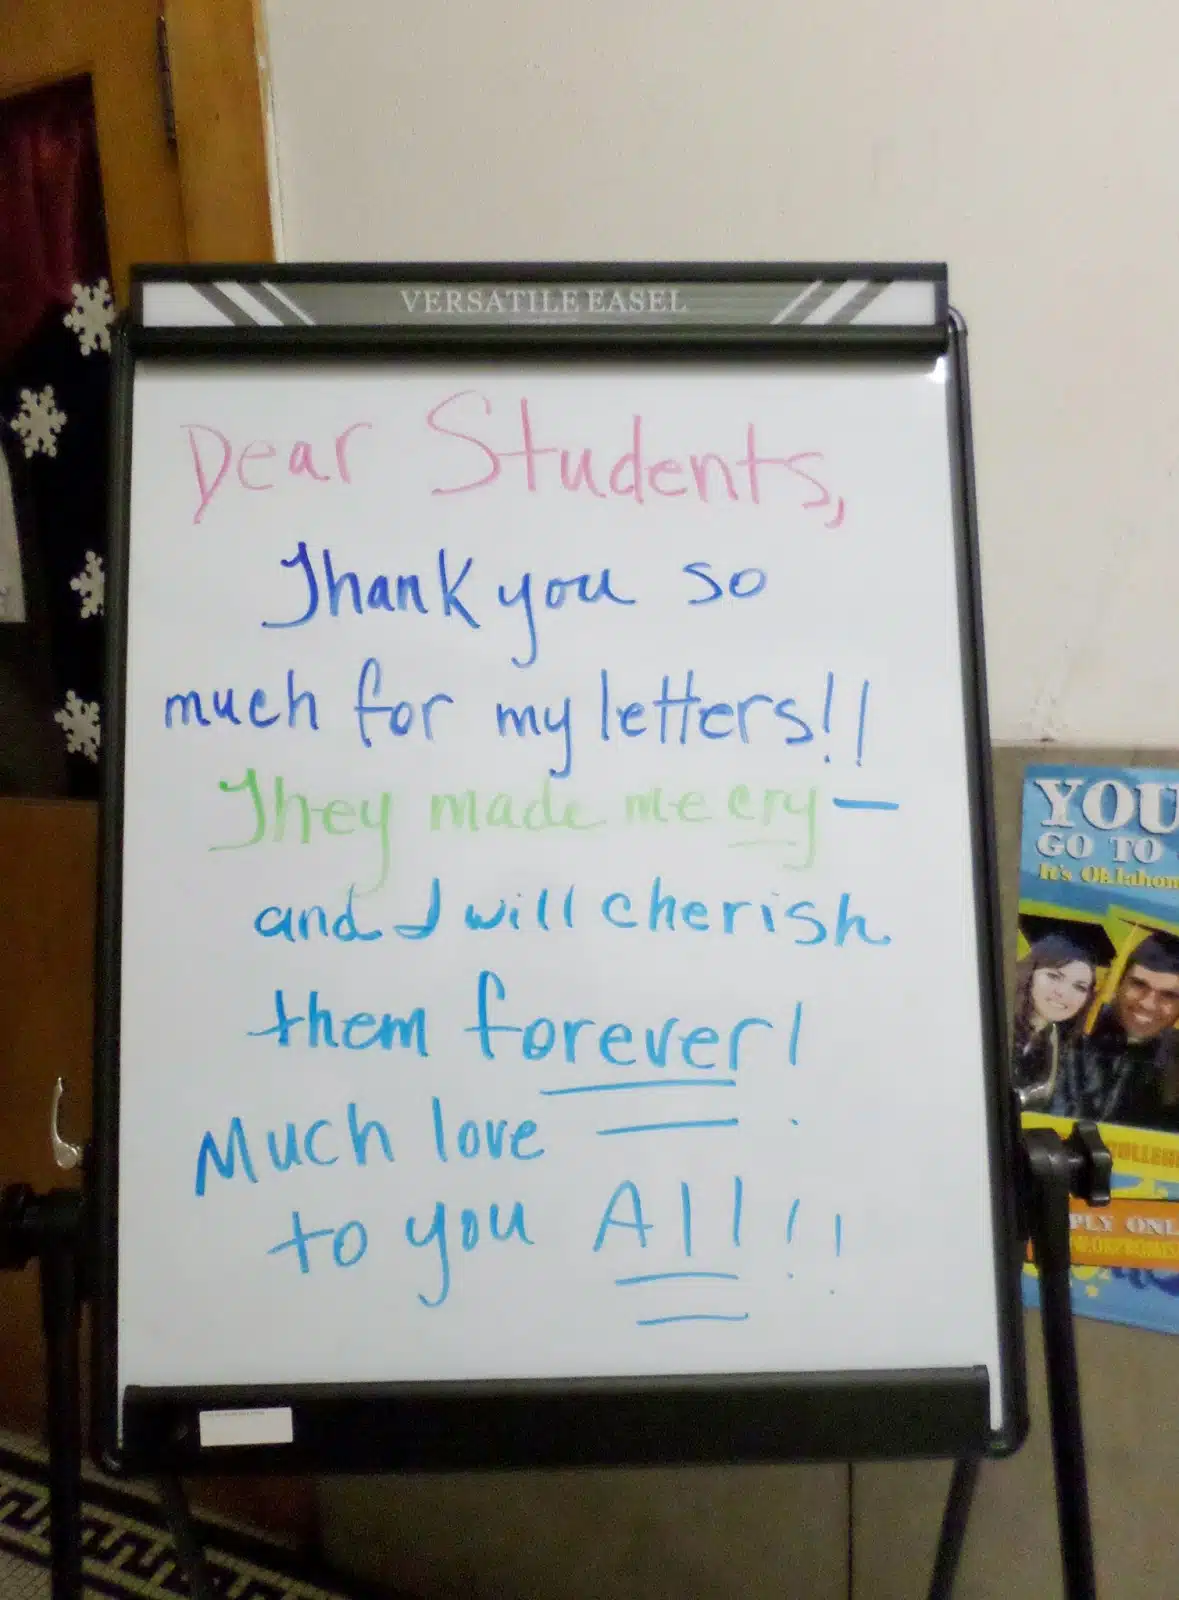 VERSATILE EASEL
Dear Students,
Thank you so
much for my letters!!
They made me cry —
and I will cherish
them forever!
Much love
to you All!!
YOU
GO TO
It's Oklahom
COLLEG
PLY ONL